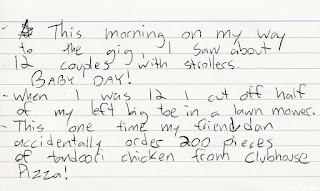 - ☆ This morning on my way
to the gig, I saw about
12 couples with strollers.
BABY DAY!
- When I was 12 I cut off half
of my left big toe in a lawn mower.
- This one time my friend dan
accidentally order 200 pieces
of tandoori chicken from Clubhouse
Pizza!